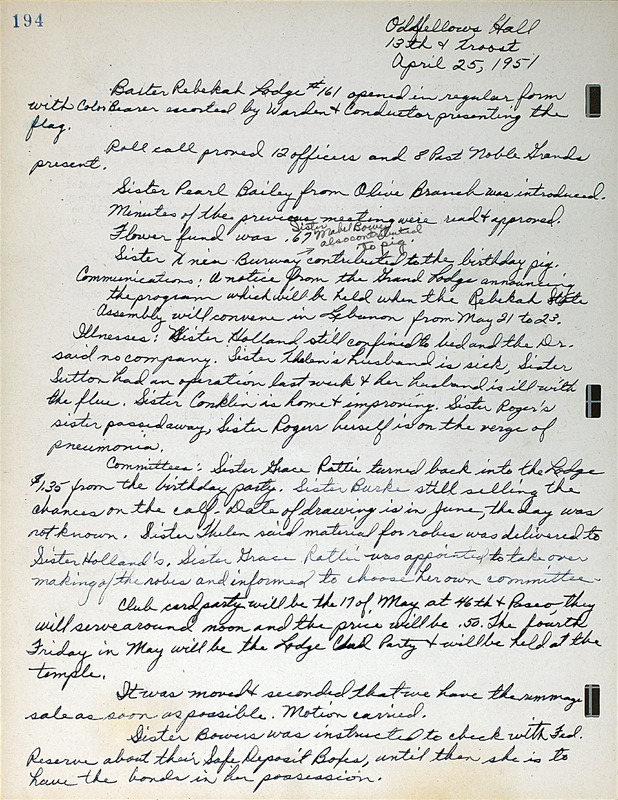 194
Oddfellows Hall
13th & Troost
April 25, 1951
Baxter Rebekah Lodge #161 opened in regular form
with Color Bearer escorted by Warden & Conductor presenting the
flag.
Roll call proved 12 officers and 8 Past Noble Grands
present.
Sister Pearl Bailey from Olive Branch was introduced.
Minutes of the previous meeting were read & approved.
Flower fund was .67 Sister Mabel Bowers
also contributed
to pig.
Sister Burway contributed to the birthday pig.
Communications: A notice from the Grand Lodge announcing
the program which will be held when the Rebekah State
Assembly will convene in Lebanon from May 21 to 23.
Illnesses: Sister Holland still confined to bed and the Dr.
said no company. Sister Thelen's husband is sick, Sister
Sutton had an operation last week & her husband is ill with
the flue. Sister Conklin is home & improving. Sister Roger's
sister passed away, Sister Rogers herself is on the verge of
pneumonia.
Committees: Sister Grace Rattie turned back into the Lodge
$1.35 from the birthday party. Sister Burke still selling the
chances on the calf. Date of drawing is in June, the day was
not known. Sister Thelen said material for robes was delivered to
Sister Holland's. Sister Grace Rattie was appointed to take over
making of the robes and informed to choose her own committee.
Club card party will be the 17 of May at 46th & Paseo, they
will serve around noon and the price will be .50. The fourth
Friday in May will be the Lodge Card Party & will be held at the
temple.
It was moved & seconded that we have the rummage
sale as soon as possible. Motion carried.
Sister Bowers was instructed to check with Fed.
Reserve about their Safe Deposit Boxes, until then she is to
have the bonds in her possession.